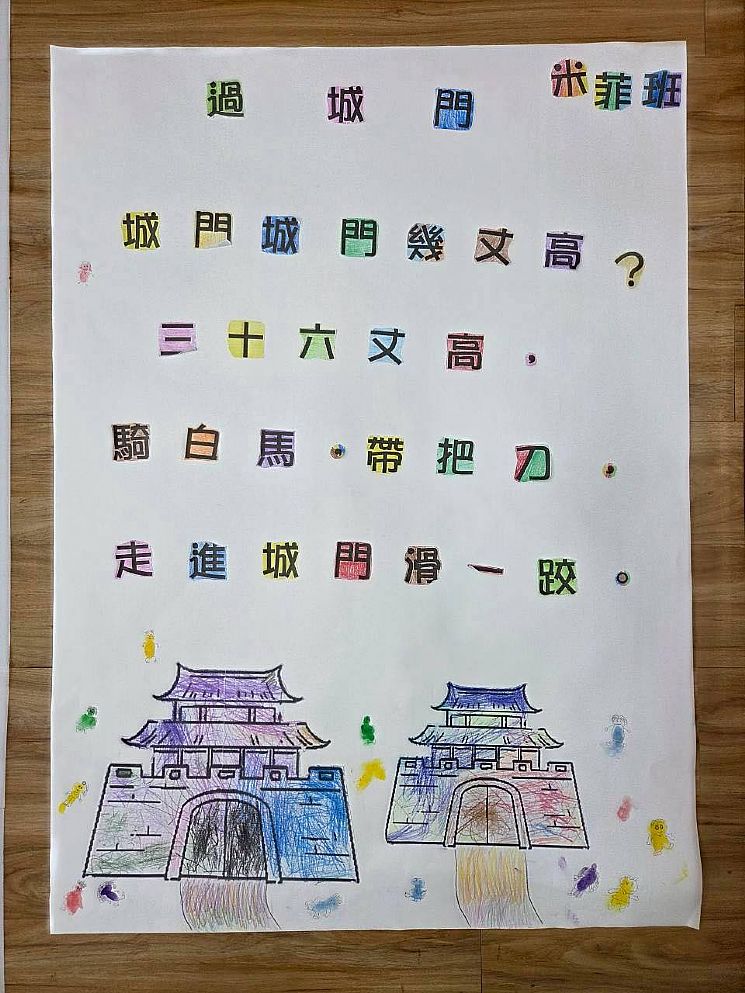 過城門
米菲班
城門城門幾丈高？
三十六丈高，
騎白馬。帶把刀。
走進城門滑一跤。